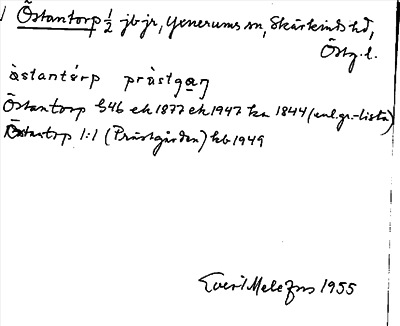 Östantorp ½ jbjr, Yenerums sn, Skärkinds hd,
Östg. l.
àstantǿrp prǻstgaŋ
Östantorp G46 ek 1877 ek 1947 ka 1844 (enl. gr.-lista)
Östantorp 1:1 (Prästgården) kb 1949
Evert Melefors 1955